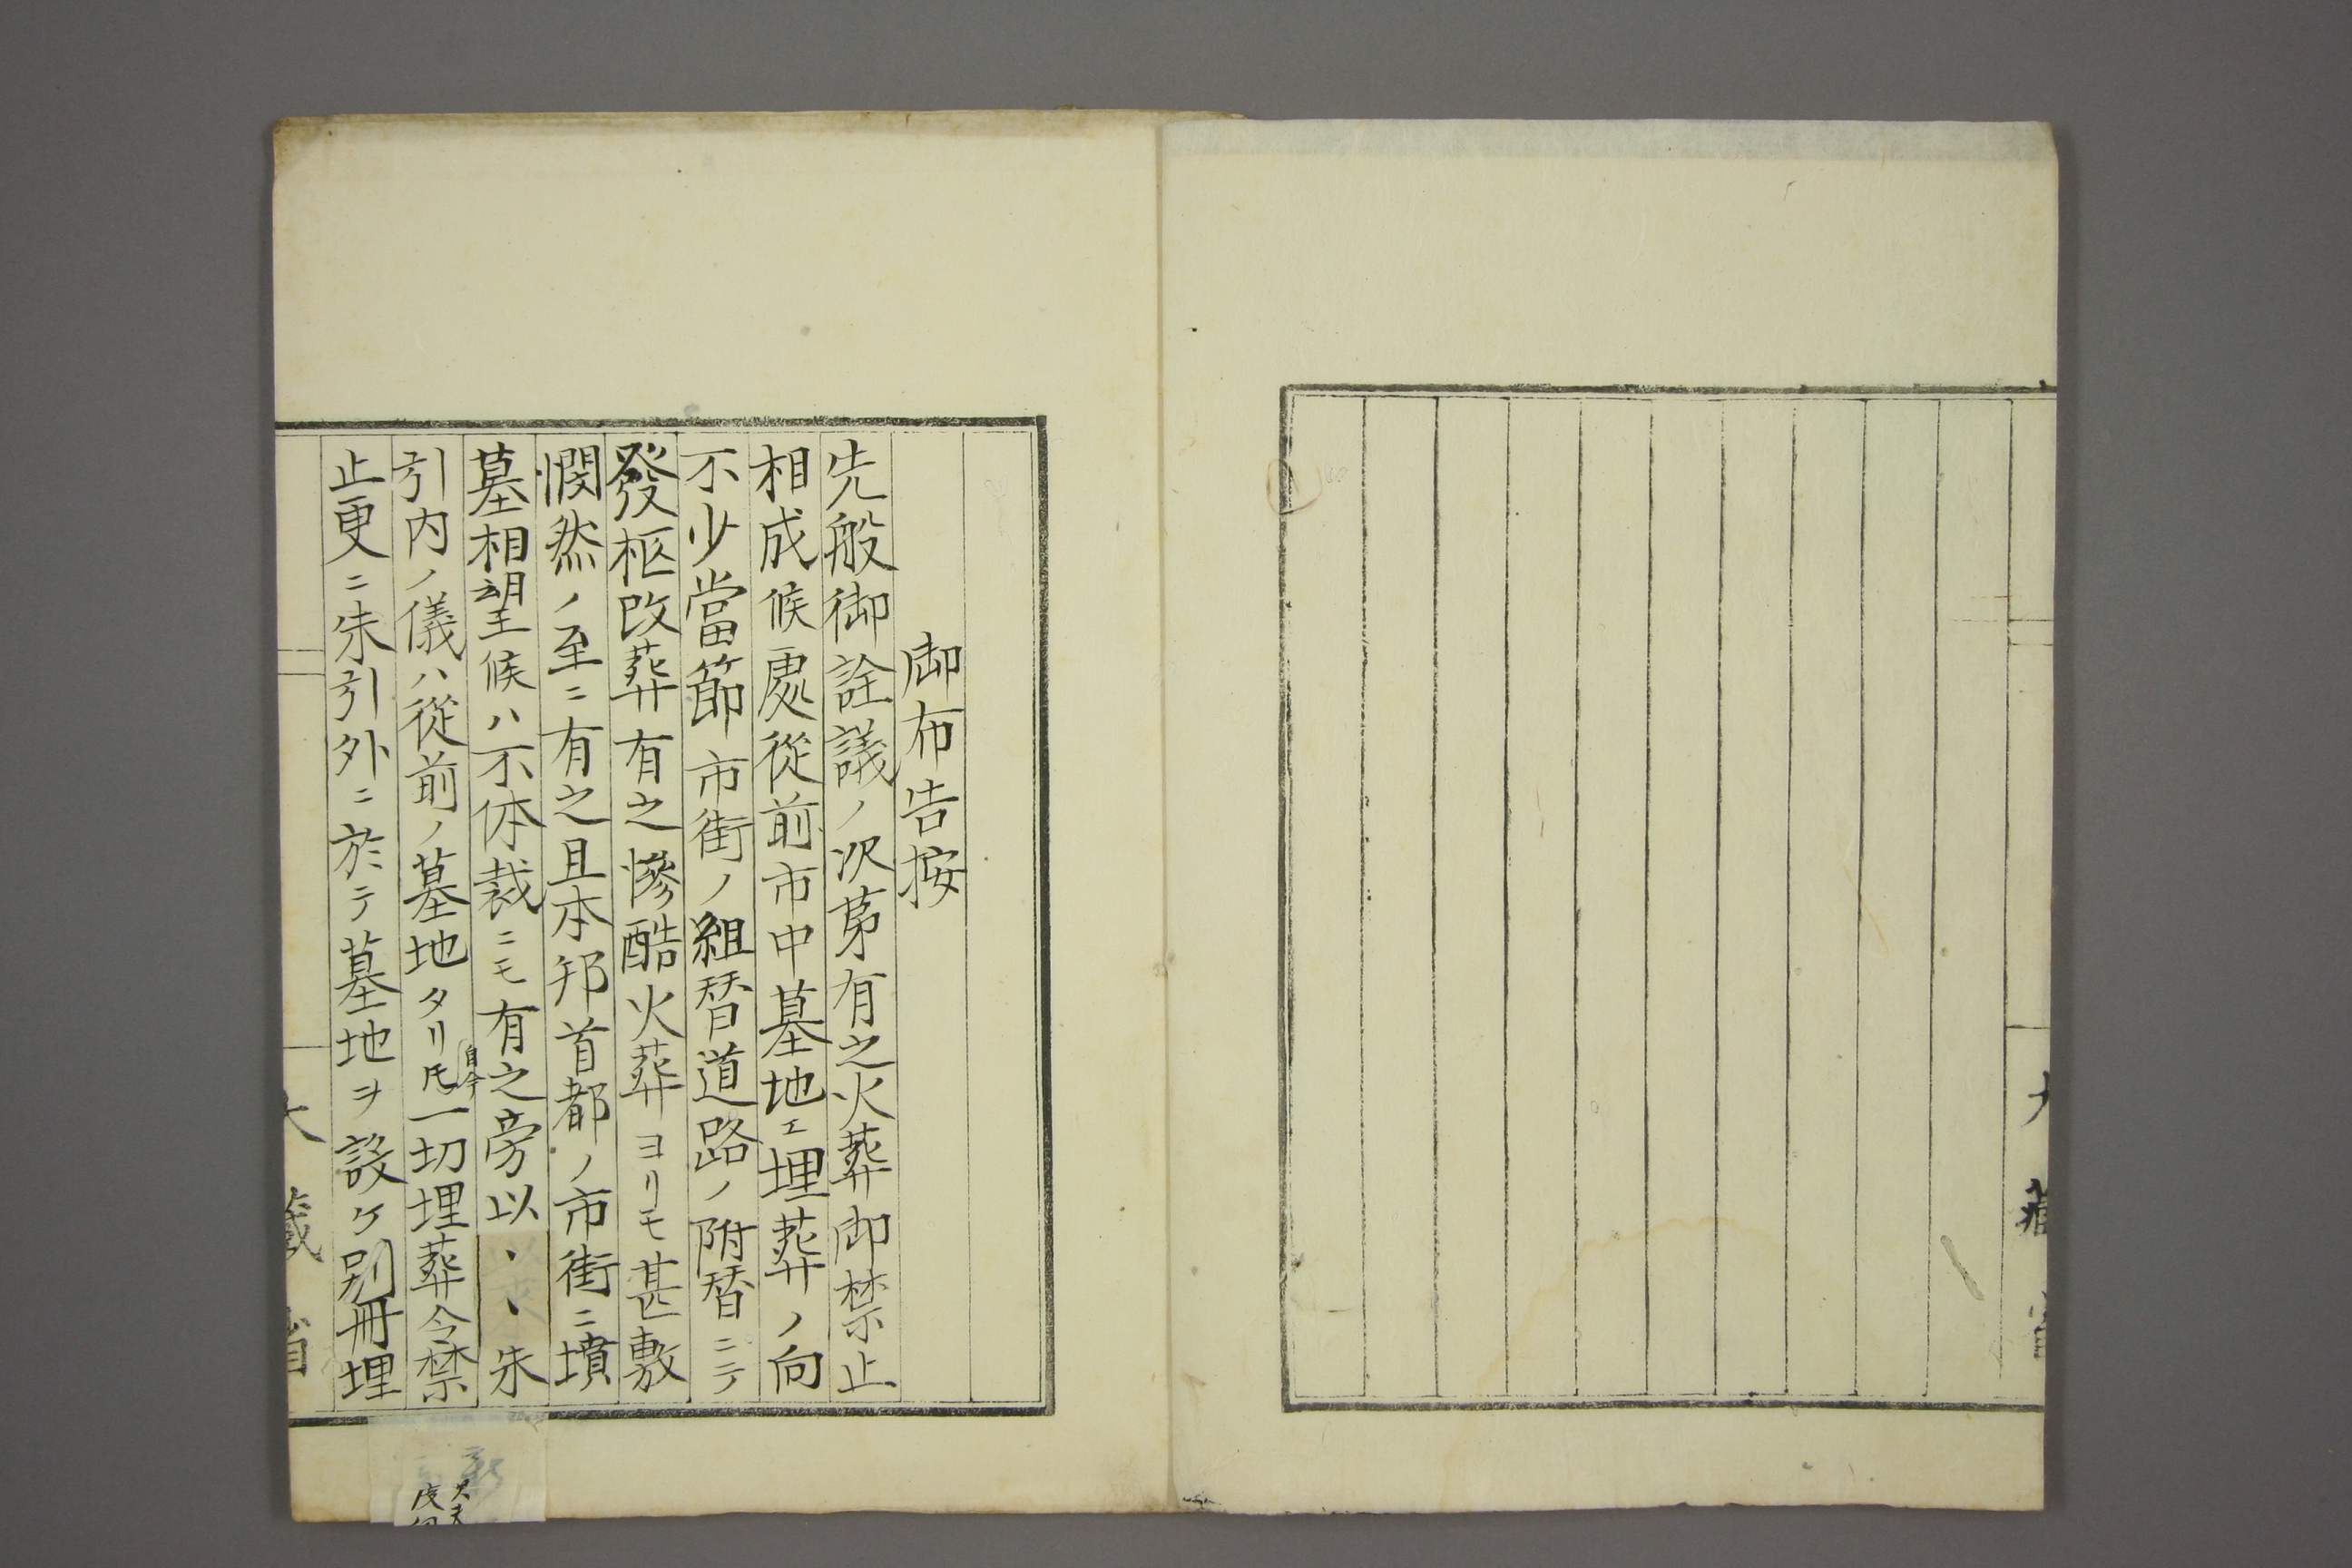 御布告按
先般御詮議ノ次第有之火葬御禁止
相成候處從前市中墓地エ埋葬ノ向
不少當節市街ノ組替道路ノ附替ニテ
發柩改葬有之慘酷火葬ヨリモ甚敷
憫然ノ至ニ有之且本邦首都ノ市街ニ墳
墓相望候ハ不体裁ニモ有之旁以、、朱
引内ノ儀ハ從前ノ墓地タリ𪜈自今一切埋葬令禁
止更ニ朱引外ニ於テ墓地ヲ設ケ別冊埋
大藏省